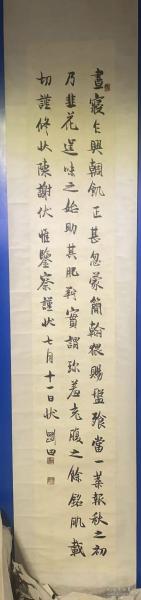 晝寢乍興輖飢正甚忽蒙簡翰猥賜盤飱當一葉報秋之初
乃韭花逞味之始助其肥羜實謂珍羞充腹之餘銘肌載
切謹修狀陳謝伏惟鑒察謹狀七月十一日狀